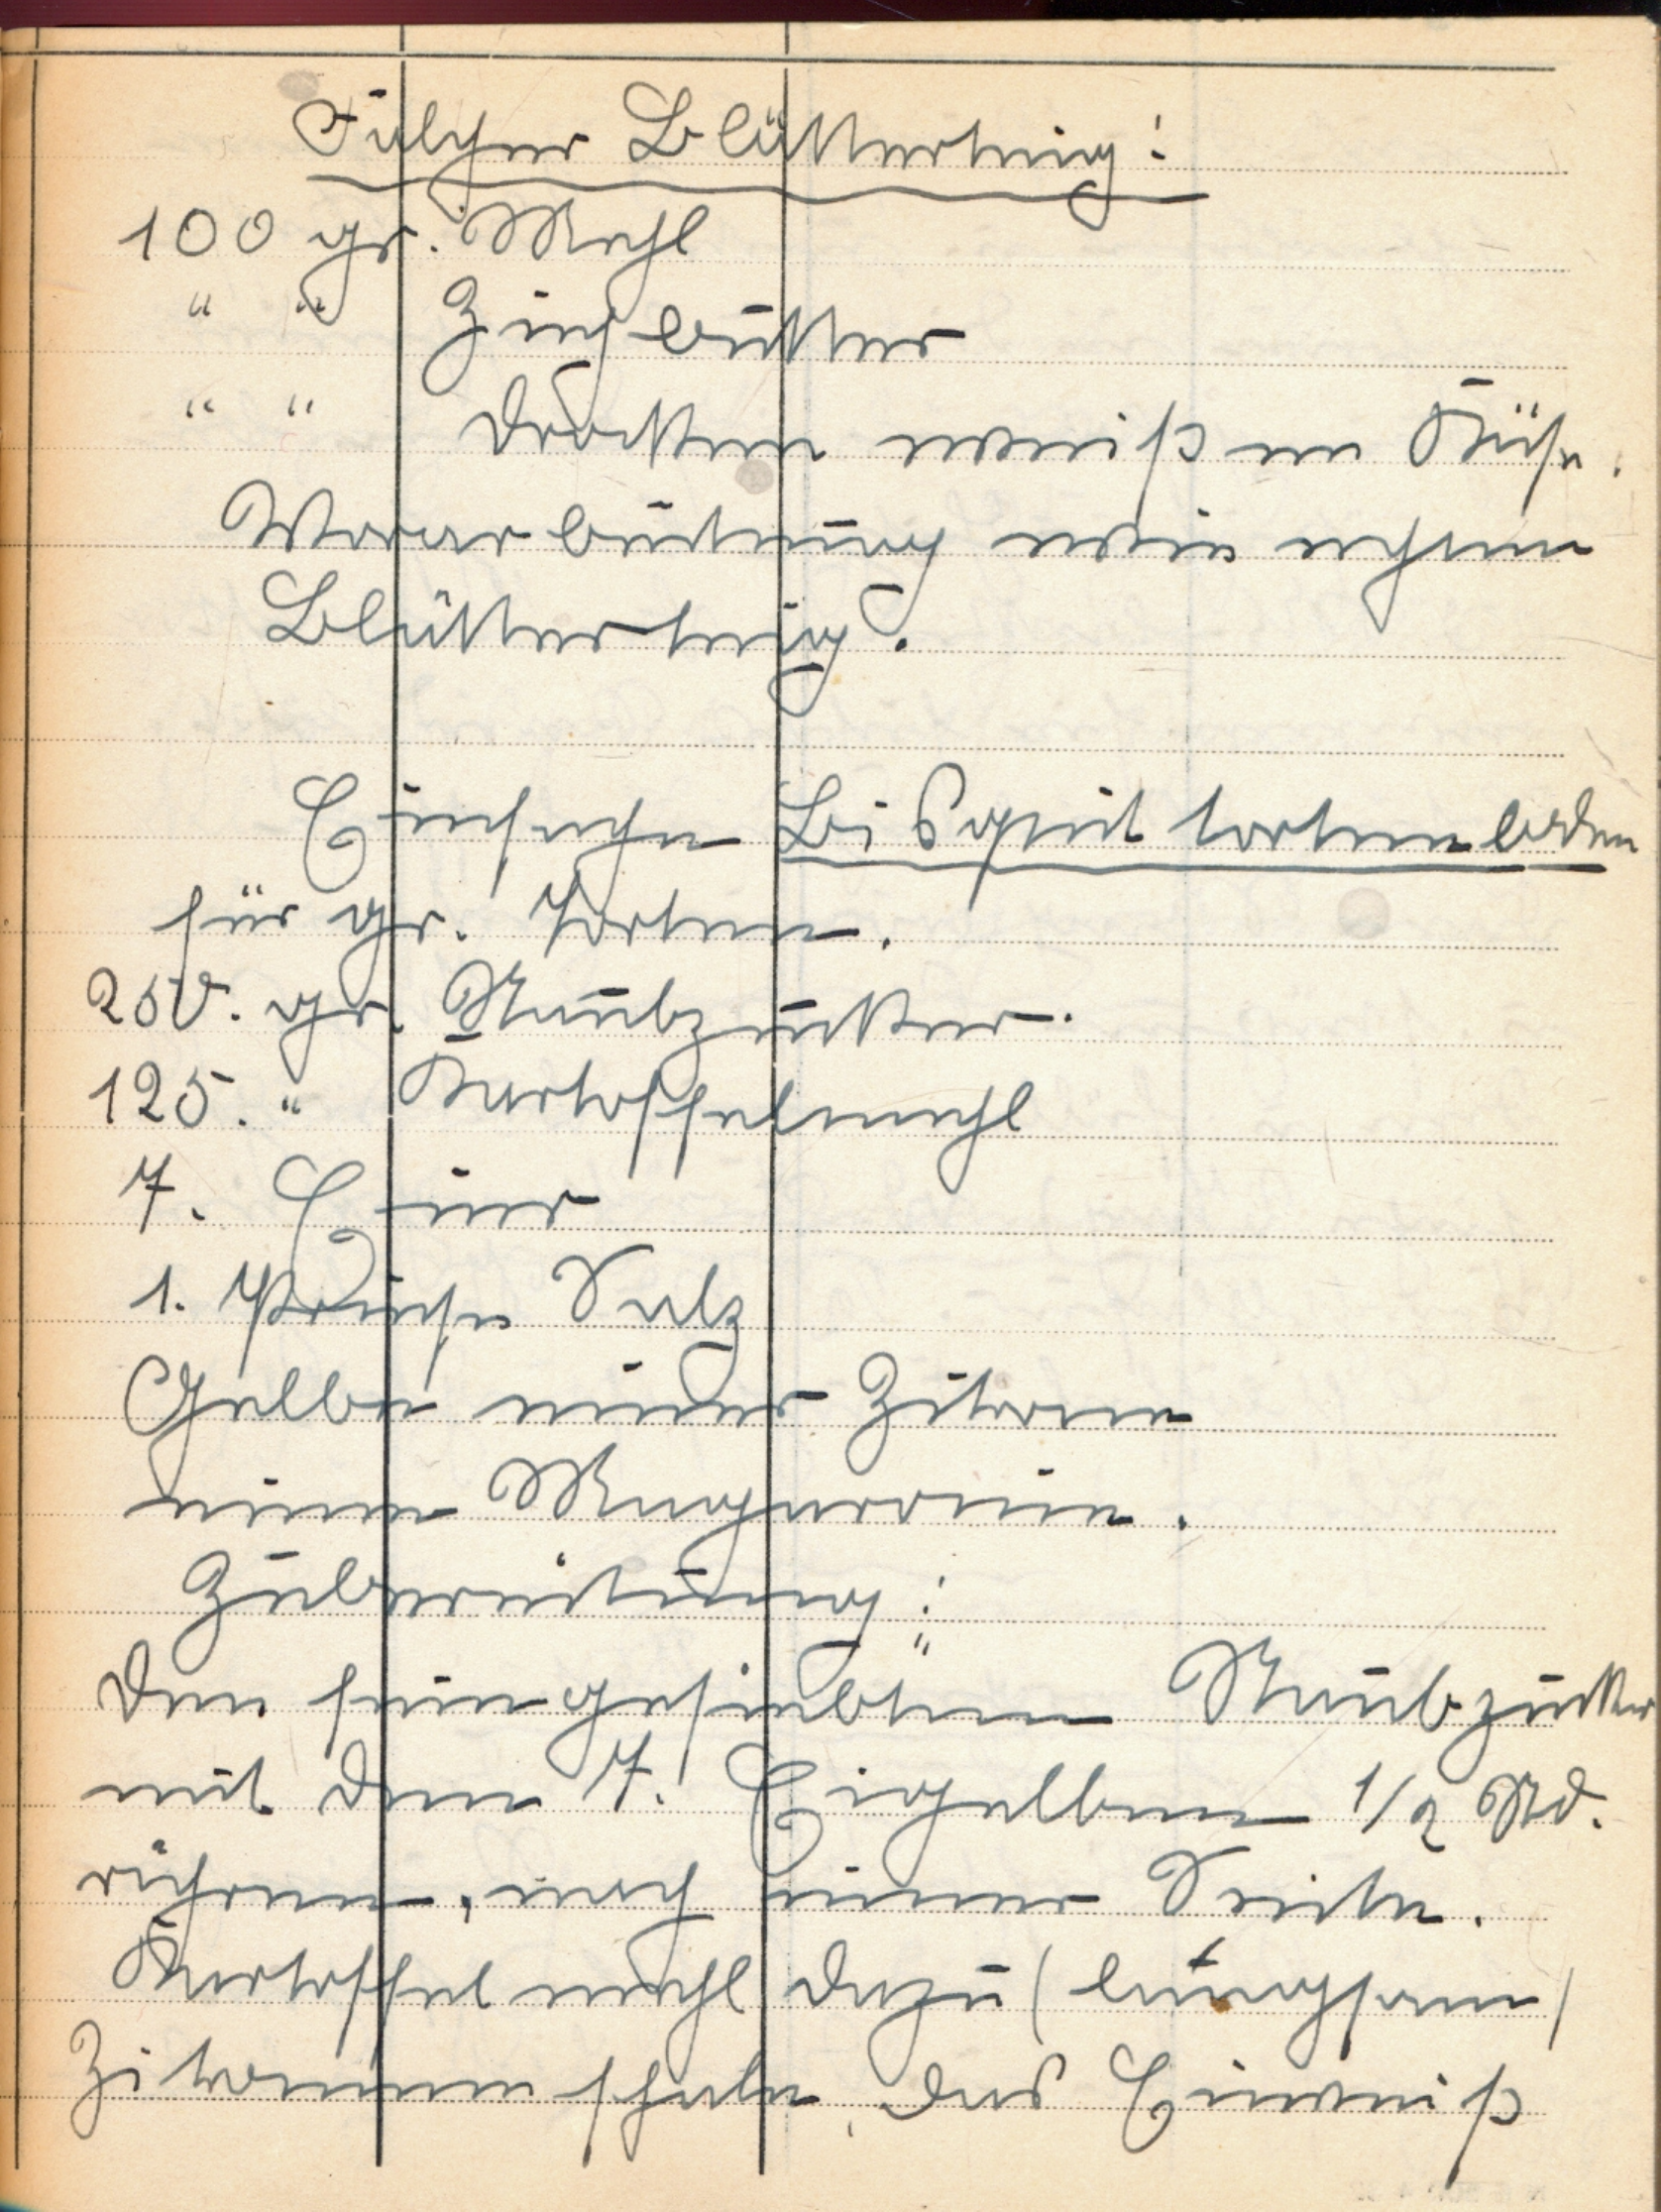 Falscher Blätterteig:
100 gr. Mehl
" " Ziehbutter
" " trockenen weißen Käse.
Verarbeitung wie echten
Blätterteig.
Einfache Bisquit tortenboden
für gr. Torten.
250. gr. Staubzucker.
125. " Kartoffelmehl
7. Eier
1. Prise Salz
Gelbe einer Zitrone
einen Margarine.
Zubereitung:
Den feingesiebten Staubzucker
mit den 7. Eigelben 1/2 Std.
rühren, nach einer Seite.
Kartoffel mehl dazu (langsam)
Zitronenschale, das Eiweiß